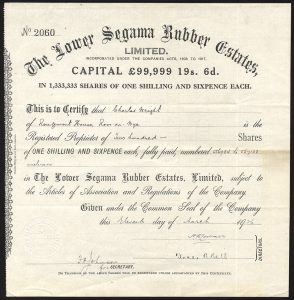 No. 2060
The Lower Segama Rubber Estates,
LIMITED.
INCORPORATED UNDER THE COMPANIES ACTS, 1908 TO 1917.
CAPITAL £99,999 19s. 6d.
IN 1,333,333 SHARES OF ONE SHILLING AND SIXPENCE EACH.
This is to Certify that Charles Wright
of House, Ross-on-Wye is the
Registered Proprietor of Two hundred Shares
of ONE SHILLING AND SIXPENCE each, fully paid, numbered to
inclusive
in The Lower Segama Rubber Estates, Limited, subject to
the Articles of Association and Regulations of the Company.
Given under the Common Seal of the Company
this day of March 19
DIRECTORS.
SECRETARY.
No Transfer of the above Shares can be registered unless accompanied by this Certificate.